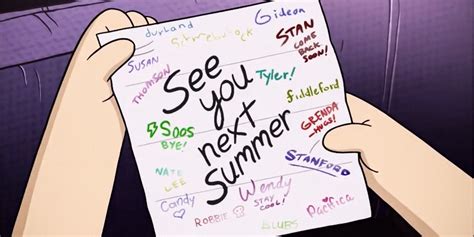 durland
Gideon
STAN
COME
BACK
SOON!
SUSAN
THOMSON
See
you
next
Summer
Tyler!
fiddleford
SOOS
BYE!
GRENDA
-HUGS!
NATE
LEE
STANFORD
Candy
ROBBIE
Wendy
STAY
COOL!
Pacifica
BLUBS